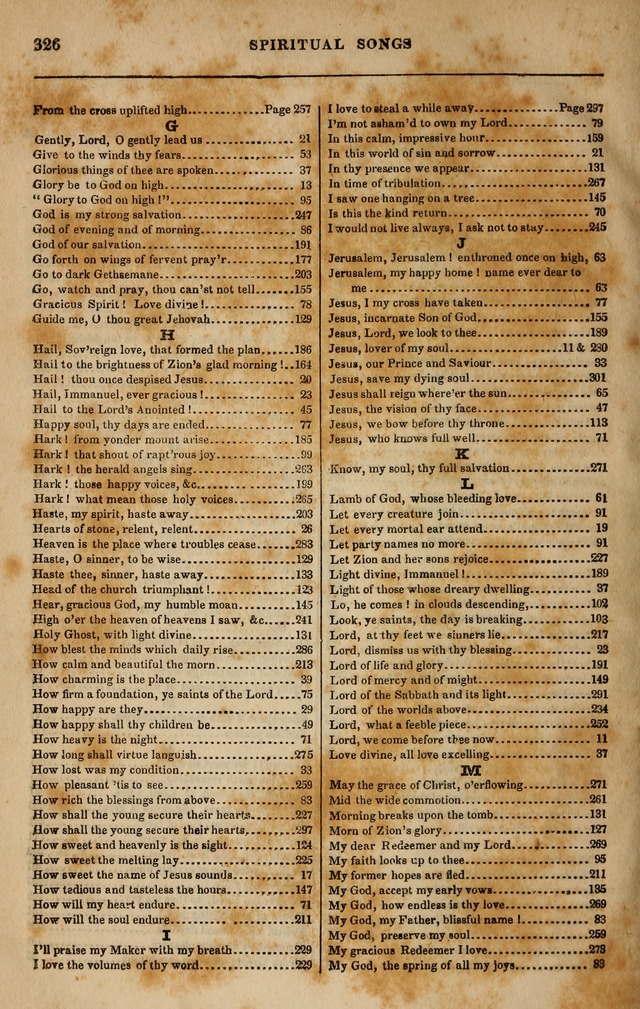 326
SPIRITUAL SONGS
From the cross uplifted high.............Page 257
G
Gently, Lord, O gently lead us ................ 21
Give to the winds thy fears.................... 53
Glorious things of thee are spoken............. 37
Glory be to God on high........................ 13
" Glory to God on high !"...................... 95
God is my strong salvation.....................247
God of evening and of morning.................. 86
God of our salvation...........................191
Go forth on wings of fervent pray'r............177
Go to dark Gethsemane..........................203
Go, watch and pray, thou can'st not tell.......155
Gracious Spirit! Love divine !................. 78
Guide me, O thou great Jehovah.................129
H
Hail, Sov'reign love, that formed the plan......186
Hail to the brightness of Zion's glad morning !..164
Hail ! thou once despised Jesus................ 20
Hail, Immanuel, ever gracious !................ 23
Hail to the Lord's Anointed !.................. 45
Happy soul, thy days are ended................. 77
Hark ! from yonder mount arise.................185
Hark ! that shout of rapt'rous joy............. 99
Hark ! the herald angels sing..................263
Hark ! those happy voices, &c..................199
Hark ! what mean those holy voices.............265
Haste, my spirit, haste away...................203
Hearts of stone, relent, relent................ 26
Heaven is the place where troubles cease.......283
Haste, O sinner, to be wise....................129
Haste thee, sinner, haste away.................133
Head of the church triumphant !................123
Hear, gracious God, my humble moan.............145
High o'er the heaven of heavens I saw, &c......241
Holy Ghost, with light divine..................131
How blest the minds which daily rise...........286
How calm and beautiful the morn................213
How charming is the place...................... 39
How firm a foundation, ye saints of the Lord....75
How happy are they............................. 29
How happy shall thy children be.................49
How heavy is the night......................... 71
How long shall virtue languish.................275
How lost was my condition...................... 33
How pleasant 'tis to see.......................259
How rich the blessings from above.............. 83
How shall the young secure their hearts........227
How shall the young secure their hearts........297
How sweet and heavenly is the sight............124
How sweet the melting lay......................225
How sweet the name of Jesus sounds............. 17
How tedious and tasteless the hours............147
How will my heart endure....................... 71
How will the soul endure.......................211
I
I'll praise my Maker with my breath............229
I love the volumes of thy word.................229
I love to steal a while away..............Page 297
I'm not asham'd to own my Lord................. 79
In this calm, impressive hour..................159
In this world of sin and sorrow................ 21
In thy presence we appear......................131
In time of tribulation.........................267
I saw one hanging on a tree....................145
Is this the kind return........................ 70
I would not live always, I ask not to stay.....245
J
Jerusalem, Jerusalem ! enthroned once on high, 63
Jerusalem, my happy home ! name ever dear to
me ............................................ 63
Jesus, I my cross have taken................... 77
Jesus, incarnate Son of God....................155
Jesus, Lord, we look to thee...................189
Jesus, lover of my soul..................11 & 280
Jesus, our Prince and Saviour.................. 33
Jesus, save my dying soul......................301
Jesus shall reign where'er the sun............. 65
Jesus, the vision of thy face.................. 47
Jesus, we bow before thy throne................113
Jesus, who knows full well..................... 71
K
Know, my soul, thy full salvation..............271
L
Lamb of God, whose bleeding love............... 61
Let every creature join........................ 91
Let every mortal ear attend.................... 19
Let party names no more........................ 91
Let Zion and her sons rejoice..................227
Light divine, Immanuel !.......................189
Light of those whose dreary dwelling........... 37
Lo, he comes ! in clouds descending,...........102
Look, ye saints, the day is breaking...........103
Lord, at thy feet we sinners lie...............217
Lord, dismiss us with thy blessing............. 23
Lord of life and glory.........................191
Lord of mercy and of might.....................149
Lord of the Sabbath and its light..............291
Lord of the worlds above.......................234
Lord, what a feeble piece......................252
Lord, we come before thee now.................. 11
Love divine, all love excelling................ 37
M
May the grace of Christ, o'erflowing...........271
Mid the wide commotion.........................261
Morning breaks upon the tomb...................131
Morn of Zion's glory...........................127
My dear Redeemer and my Lord...................269
My faith looks up to thee...................... 95
My former hopes are fled.......................211
My God, accept my early vows...................135
My God, how endless is thy love................269
My God, my Father, blissful name !............. 83
My God, preserve my soul.......................259
My gracious Redeemer I love....................273
My God, the spring of all my joys.............. 83